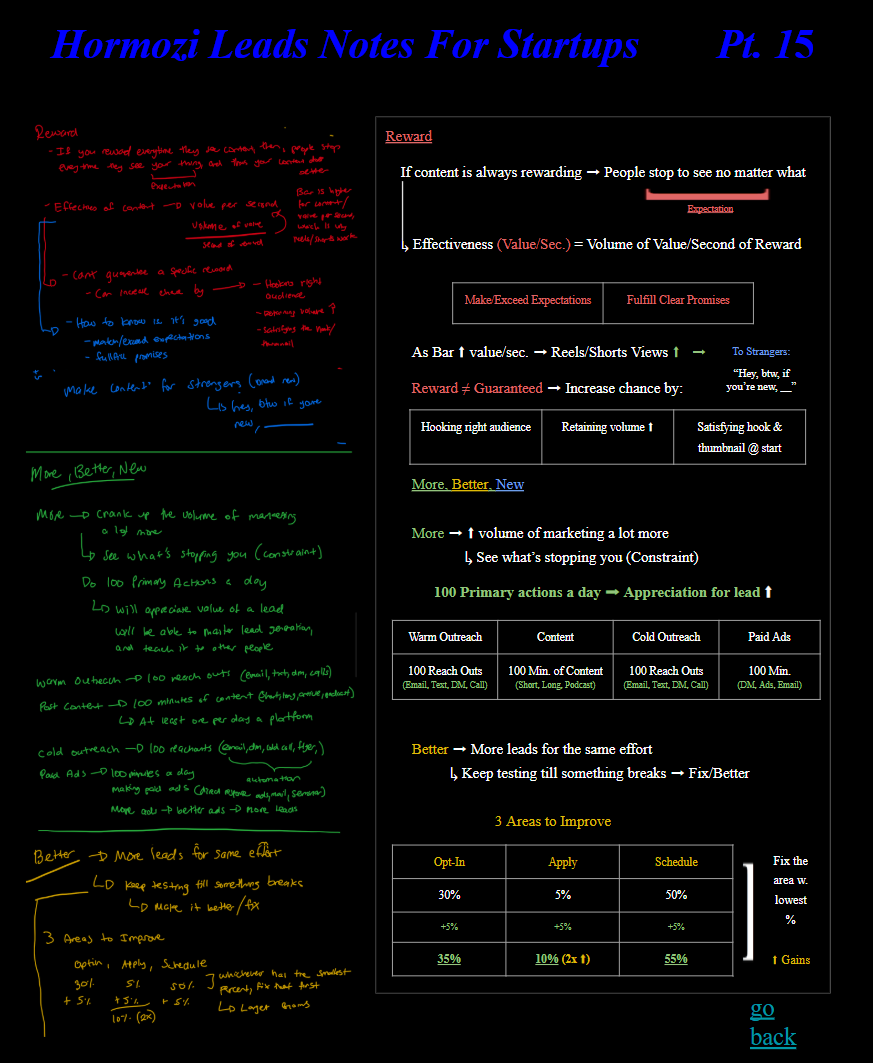 Hormozi Leads Notes For Startups Pt. 15
Reward
- If you reward everytime they see content then, people stop
everytime they see your thing and then your content does
better
Expectation
- Effectiveness of content → value per second
Volume of value
second of reward
Bar is higher
for content/
value per second,
which is why
reels/shorts work
- Can't guarantee a specific reward
- Can increase chance by →
- Hooking right
audience
- Retaining volume ↑
- Satisfying the hook/
thumnail
- How to know if it's good
- match/exceed expectations
- fulfill promises
Make content for strangers
↳ hey, btw if youre
new, ____
More, Better, New
More → Crank up the volume of marketing
a lot more
↳ See what's stopping you (constraint)
Do 100 Primary Actions a day
↳ will appreciate value of a lead
will be able to master lead generation,
and teach it to other people
Warm outreach → 100 reach outs (email, text, dm, calls)
Post content → 100 minutes of content (short, long, podcast)
↳ At least one per day a platform
Cold outreach → 100 reachouts (email, dm, cold call, flyer,)
automation
Paid Ads → 100 minutes a day
making paid ads (direct response ads, mail, seminar)
More ads → better ads → more leads
Better → More leads for same effort
↳ Keep testing till something breaks
↳ Make it better/fix
3 Areas to Improve
Optin, Apply, Schedule
30% 5% 50%
+ 5% + 5% + 5%
10% (2x)
whichever has the smallest
percent, fix that first
↳ Larger Gains
Reward
If content is always rewarding → People stop to see no matter what
Expectation
↳ Effectiveness (Value/Sec.) = Volume of Value/Second of Reward
Make/Exceed Expectations Fulfill Clear Promises
As Bar ⬆ value/sec. → Reels/Shorts Views ↑ → To Strangers:
“Hey, btw, if
you’re new, __”
Reward ≠ Guaranteed → Increase chance by:
Hooking right audience Retaining volume ⬆ Satisfying hook &
thumbnail @ start
More, Better, New
More → ⬆ volume of marketing a lot more
↳ See what’s stopping you (Constraint)
100 Primary actions a day → Appreciation for lead ⬆
Warm Outreach Content Cold Outreach Paid Ads
100 Reach Outs 100 Min. of Content 100 Reach Outs 100 Min.
(Email, Text, DM, Call) (Short, Long, Podcast) (Email, Text, DM, Call) (DM, Ads, Email)
Better → More leads for the same effort
↳ Keep testing till something breaks → Fix/Better
3 Areas to Improve
Opt-In Apply Schedule
30% 5% 50%
+5% +5% +5%
35% 10% (2x ⬆) 55%
Fix the
area w.
lowest
%
⬆ Gains
go
back